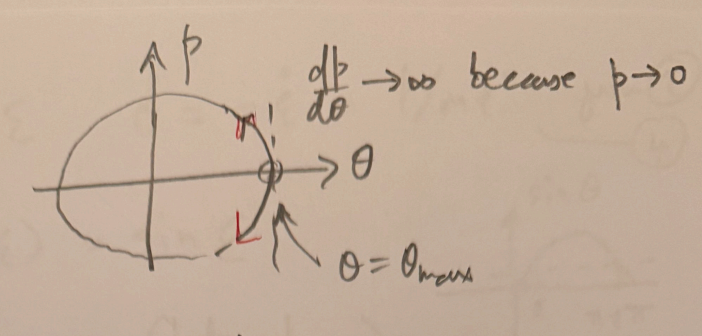 p
dp/dθ → ∞ because p → 0
θ
θ = θmax